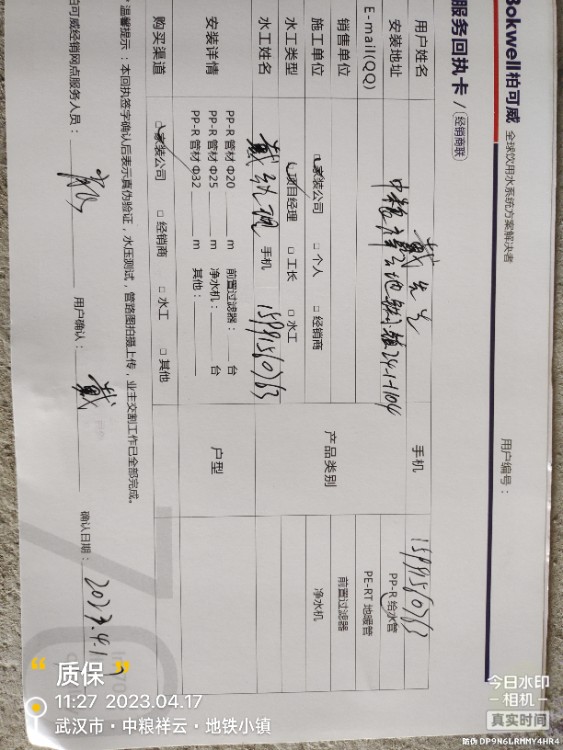 Bokwell柏可威 全球饮用水系统方案解决者
服务回执卡 / 经销商联
用户编号：
用户姓名 戴先生 手机 15991560763
安装地址 中粮祥云地铁小镇24-1-1104
E-mail(QQ)
销售单位
施工单位 □家装公司 □个人 □经销商
水工类型 □项目经理 □工长 □水工
水工姓名 手机 15991560763
产品类别 PP-R 给水管
PE-RT 地暖管
前置过滤器
净水机
安装详情 PP-R 管材 Φ20 m 前置过滤器： 台
PP-R 管材 Φ25 m 净水机： 台
PP-R 管材 Φ32 m 其他：
户型
购买渠道 □家装公司 □经销商 □水工 □其他
温馨提示：本回执签字确认后表示真伪验证，水压测试，管路图拍摄上传，业主交割工作已全部完成。
柏可威经销网点服务人员： 用户确认： 戴 确认日期： 2023.4.1
“ 质保 ”
11:27 2023.04.17
武汉市·中粮祥云·地铁小镇
今日水印
相机
真实时间
防伪 DP9N6LRMMY4HR4